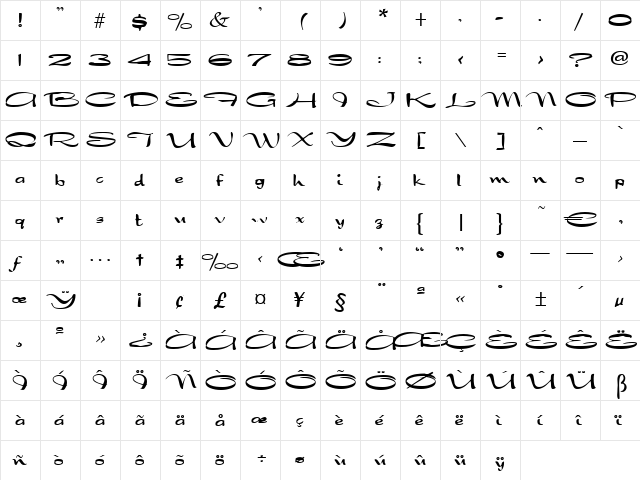 ! " # $ % & ' ( ) * + , - . / 0
1 2 3 4 5 6 7 8 9 : ; < = > ? @
A B C D E F G H I J K L M N O P
Q R S T U V W X Y Z [ \ ] ^ _ `
a b c d e f g h i j k l m n o p
q r s t u v w x y z { | } ~ € ,
ƒ „ … † ‡ ‰ ‹ Œ ‘ ’ “ ” • – — ›
œ Ÿ ¡ ¢ £ ¤ ¥ § ¨ ª « ± ´ µ
¸ º » ¿ À Á Â Ã Ä Å Æ Ç È É Ê Ë
Ì Í Î Ï Ñ Ò Ó Ô Õ Ö Ø Ù Ú Û Ü ß
à á â ã ä å æ ç è é ê ë ì í î ï
ñ ò ó ô õ ö ÷ ø ù ú û ü ÿ